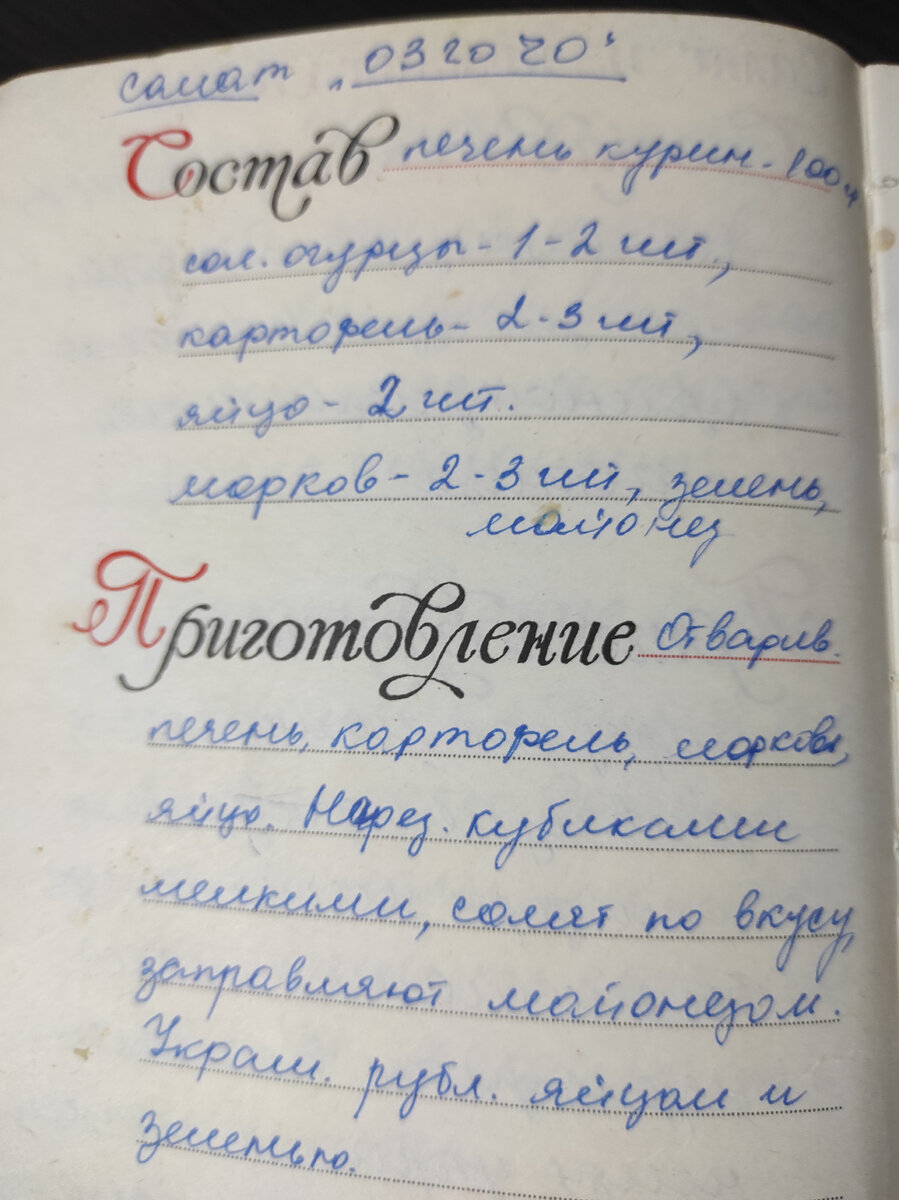 салат „ОЗГОЧО"
Состав печень курин. 100 г
сол. огурцы - 1-2 шт,
картофель - 2-3 шт,
яйцо - 2 шт.
морков - 2-3 шт, зелень,
майонез
Приготовление Отварив.
печень, картофель, морковь,
яйцо. Нарез. кубиками
мелкими, солят по вкусу,
заправляют майонезом.
Украш. рубл. яйцом и
зеленью.